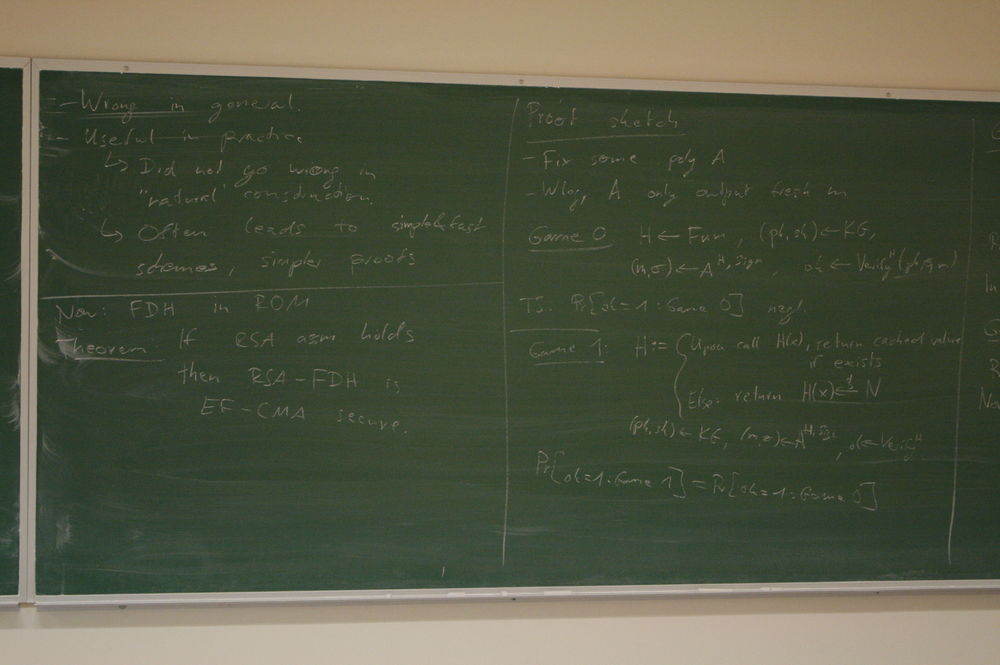 - Wrong in general.
- Useful in practice
↳ Did not go wrong in
"natural" construction.
↳ Often leads to simple & fast
schemes, simpler proofs
Now: FDH in ROM
Theorem If RSA assm holds
then RSA-FDH is
EF-CMA secure.
Proof sketch
- Fix some poly A
- Wlog, A only output fresh m
Game 0 H ← Fun, (pk,sk) ← KG,
(m,σ) ← A^{H,Sign}, ok ← Verify^H(pk,σ,m)
TS: Pr[ok=1: Game 0] negl.
Game 1: H := { Upon call H(x), return cached value
if exists
Else: return H(x) ← N
(pk,sk) ← KG, (m,σ) ← A^{H,Sign}, ok ← Verify^H
Pr[ok=1: Game 1] = Pr[ok=1: Game 0]